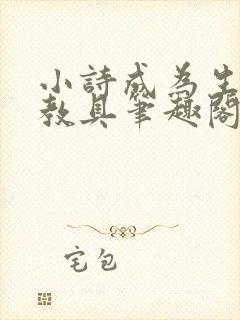 小詩成為生
教具筆趣閣
宅包